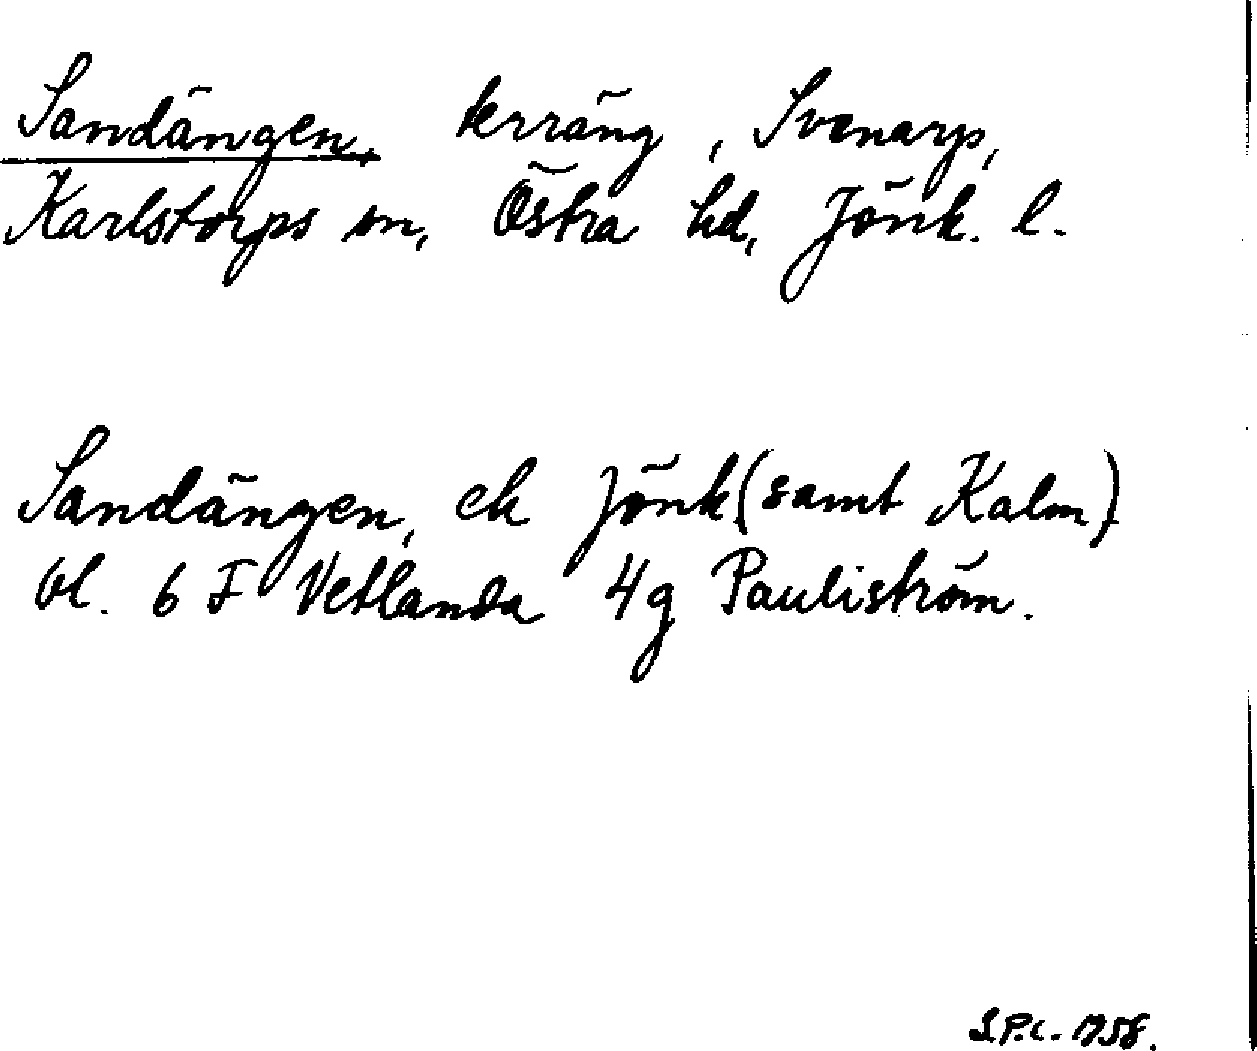 Sandängen, terräng, Svenarp,
Karlstorps sn, Östra hd, Jönk. l.
Sandängen, ek Jönk (samt Kalm)
bl. 6 F Vetlanda 4g Pauliström.
1958.